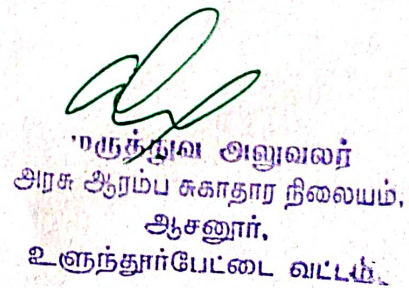 மருத்துவ அலுவலர்
அரசு ஆரம்ப சுகாதார நிலையம்,
ஆசனூர்,
உளுந்தூர்பேட்டை வட்டம்.